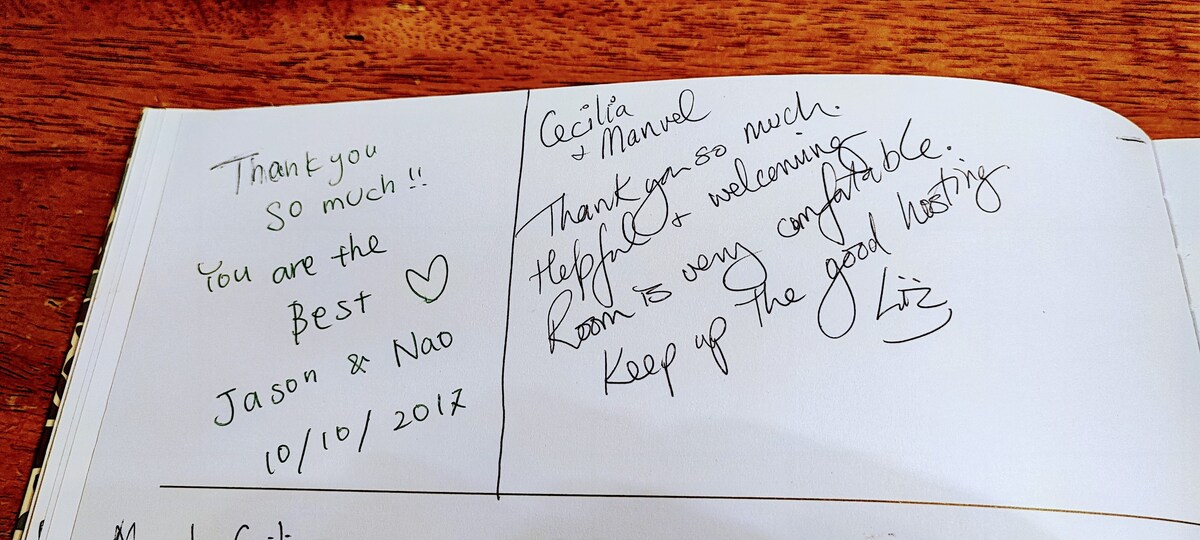 Thank you
so much!!
You are the
Best ♡
Jason & Nao
10/10/2017
Cecilia
+ Manuel
Thank you so much.
Helpful + welcoming
Room is very comfatable.
Keep up the good hosting.
Liz